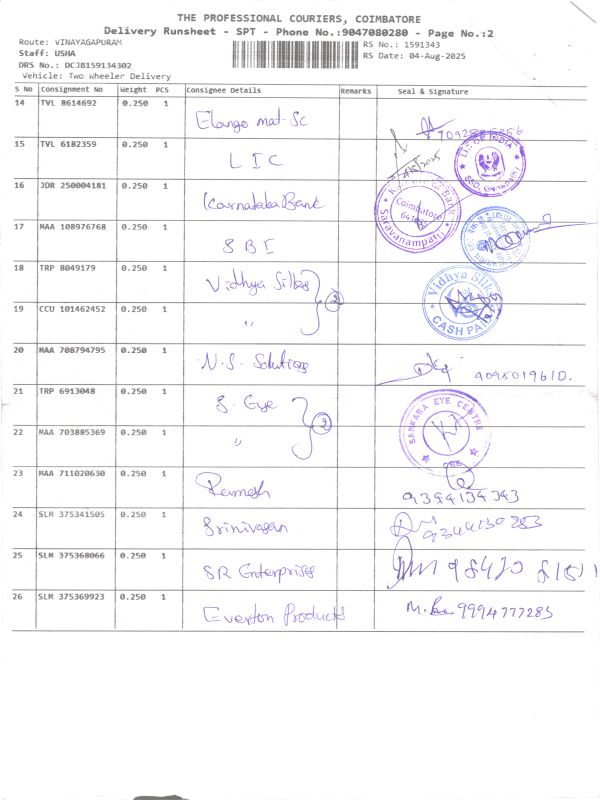 THE PROFESSIONAL COURIERS, COIMBATORE
Delivery Runsheet - SPT - Phone No.:9047080280 - Page No.:2
Route: VINAYAGAPURAM
Staff: USHA
DRS No.: DCJB159134302
Vehicle: Two Wheeler Delivery
RS No.: 1591343
RS Date: 04-Aug-2025
S No Consignment No Weight PCS Consignee Details Remarks Seal & Signature
14 TVL 8614692 0.250 1
Elango mat-Sc
15 TVL 6182359 0.250 1
LIC
LIC OF INDIA
16 JDR 250004181 0.250 1
Karnataka Bank
Coimbatore
Saravanampatti
17 MAA 108976768 0.250 1
SBI
18 TRP 8049179 0.250 1
Vidhya Silks
2
Vidhya Silks
CASH PAID
19 CCU 101462452 0.250 1
"
20 MAA 708794795 0.250 1
N.S. Solutions
9095019610.
21 TRP 6913048 0.250 1
S. Eye
2
SANKARA EYE CENTRE
22 MAA 703885369 0.250 1
"
23 MAA 711020630 0.250 1
Ramesh
9394134343
24 SLM 375341505 0.250 1
Srinivasan
9344130283
25 SLM 375368066 0.250 1
SR Enterprises
26 SLM 375369923 0.250 1
Everton Products
9994777283